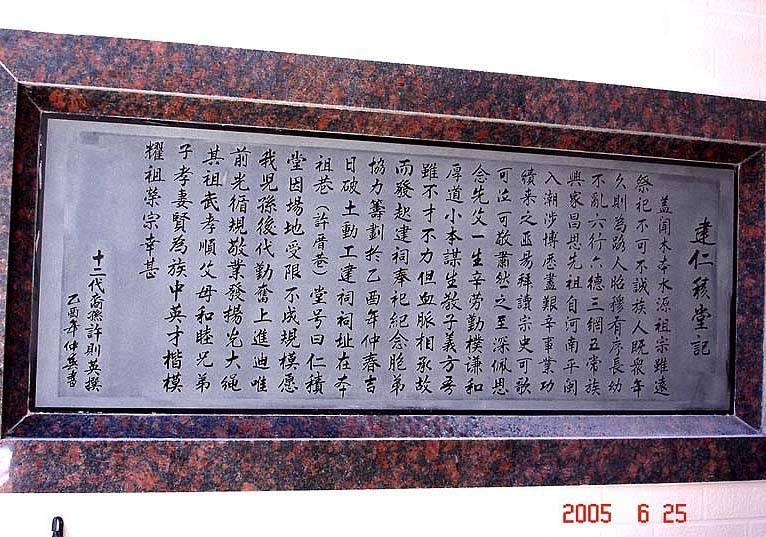 建仁積堂記
蓋聞木本水源祖宗雖遠
祭祀不可不誠族人既衆年
久則為路人昭穆有序長幼
不亂六行六德三綱五常族
興家昌思先祖自河南平閩
入潮涉博歷盡艱辛事業功
績来之匪易拜讀宗史可歌
可泣可敬肅然之至深佩恩
念先父一生辛勞勤樸謙和
厚道小本謀生教子義方吾
雖不才不力但血脈相承故
而發起建祠奉祀紀念胞弟
協力籌劃於乙酉年仲春吉
日破土動工建祠祠址在本
祖巷（許厝巷）堂号曰仁積
堂因場地受限不成規模愿
我兒孫後代勤奮上進迪唯
前光循規敬業發揚光大繩
其祖武孝順父母和睦兄弟
子孝妻賢為族中英才楷模
耀祖榮宗幸甚
十二代裔孫許則英撰
乙酉年仲英書
2005 6 25